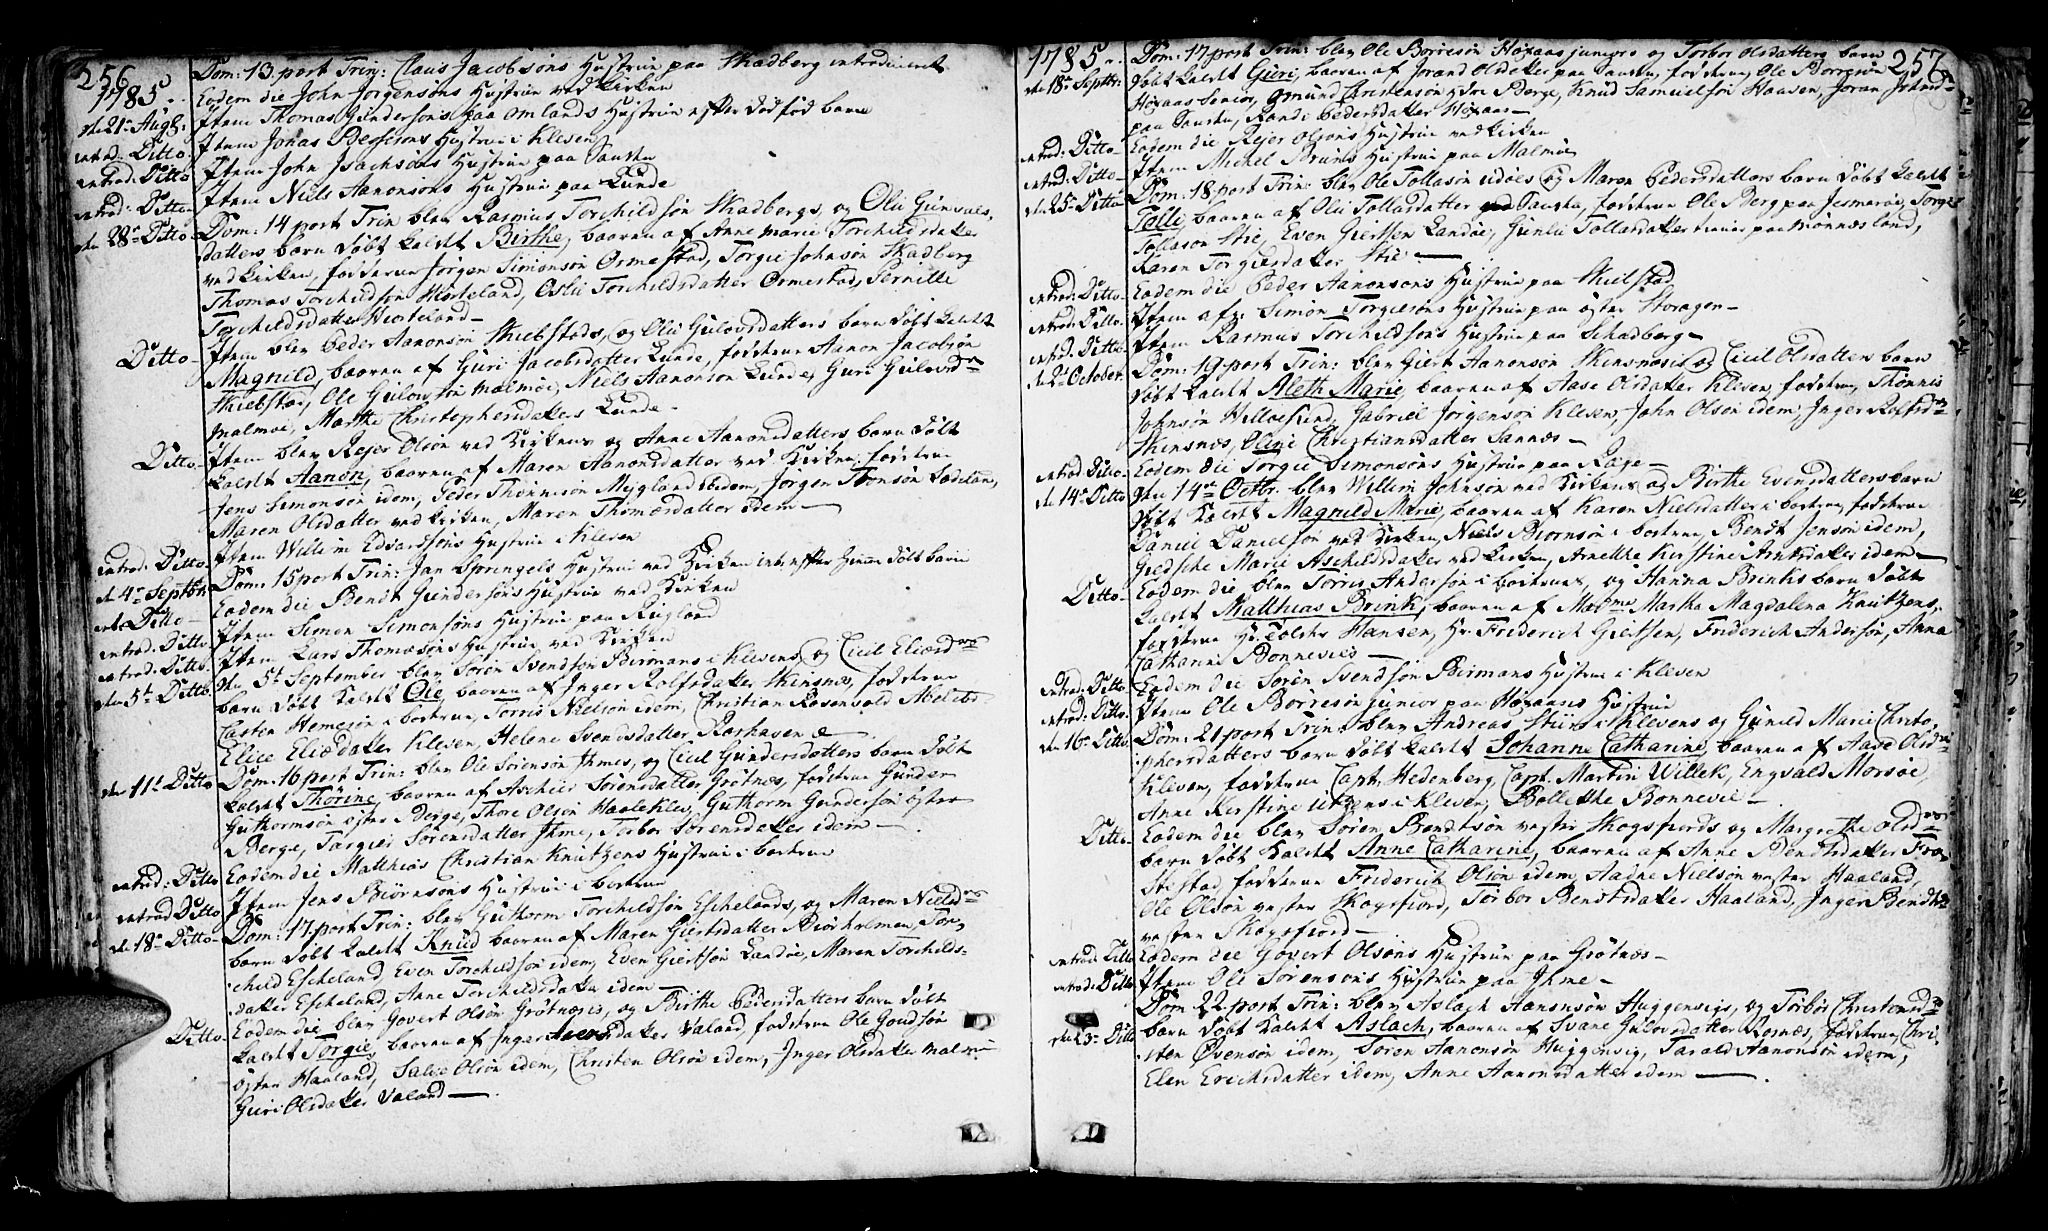 256
1785
Dom: 13. port Trin: Claus Jacobsøns Hustrue paa Skadberg introduceret
Eodem die John Jørgensøns Hustrue ved Kirken
den 21. Aug: Item Thomas Gundersøns paa Omlands Hustrue efter dødfød barn
introd: Ditto Item Jonas Bentsøns Hustrue i Kleven
introd: Ditto Item John Isachsøns Hustrue paa
introd: Ditto Item Niels Aanonsøns Hustrue paa Lunde
den 28de Ditto Dom: 14 port Trin blev Rasmus Torchildsøn Skadbergs, og Olu Gunvals-
datters barn døbt kaldt Birthe, baaren af Anne Marie Torchildsdatter
ved Kirken, fadderne Jørgen Simonsøn Ormestad, Torgie Johnsøn Skadberg
Thomas Torchildsøn Hiorteland, Oslu Torchildsdatter Ormestad, Pernille
Torchildsdatter Hiorteland
Ditto Item blev Peder Aanonsøn Skiebstads, og Olu Gulovsdatters barn døbt kaldt
Magnild, baaren af Guri Jacobsdatter Lunde, fadderne Aanon Jacobsøn
Skiebstad, Ole Gulovsøn Malmøe, Niels Aanonsøn Lunde, Guri Gulovsdr
Malmøe, Marthe Christophersdatter Lunde
Ditto Item blev Rejer Olsøn ved Kirkens og Anne Aanonsdatters barn døbt
kaldt Aanon, baaren af Maren Aanonsdatter ved Kirken, fadderne
Jens Simonsøn idem, Peder Thommesøn Mygland, Jørgen Tomsøn
Maren Olsdatter ved Kirken, Maren Thomæsdatter idem
introd: Ditto Item Willum Edvardsøns Hustrue i Kleven
den 4de Septbr Dom: 15 port Trin: Jan Sprengels Hustrue ved Kirken intr: efter hiemme døbt barn
intr. Ditto Eodem die Bendt Gundersøns Hustrue ved Kirken
introd: Ditto Item Simon Simonsøns Hustrue paa Rugland
introd: Ditto Item Lars Thomæsøns Hustrue ved Kirken
den 5te Ditto den 5te September blev Søren Svendsøn Birmans i Klevens og Cicil Eliædrs
barn døbt kaldt Ole, baaren af Inger Rolfsdatter Skinsnæs, fadderne
Casten Hemesøn i bortrua, Torris Nielsøn idem, Christian Rosenvold
Elice Eliædatter Kleven, Helene Svendsdatter
den 11te Ditto Dom: 16 port Trin: blev Ole Sørensøn Ihmes, og Cicil Gundersdatters barn døbt
kaldt Thorine, baaren af Aschier Sørensdatter Grotnæs, fadderne Gunder
Guthormsøn øster Berge, Thore Olsøn Haaleklev, Guthorm Gundersøn øster
Berge, Targier Sørensdatter Ihme, Torbor Sørensdatter idem
introd: Ditto Eodem die Matthias Christian Knutzens Hustrue i bortrua
introd: Ditto Item Jens Biørnsøns Hustrue i bortrua
den 18de Ditto Dom: 17 port Trin: blev Guthorm Torchildsøn Eschelands, og Maren Nielsdrs
barn døbt kaldt Knud baaren af Maren Giertsdatter Biørholmen, Tor-
child Escheland, Even Torchildsøn idem, Even Giertsøn Landøe, Maren Torchilds-
datter Escheland, Anne Torchildsdatter idem
Ditto Eodem die blev Govert Olsøn Grotnæses, og Birthe Pedersdatters barn døbt
kaldt Torgie, baaren af Inger datter Valand, fadderne Ole Goudsøn
østen Haaland, Salve Olsøn idem, Christen Olsøn idem, Inger Olsdatter
Guri Olsdatter Valand
257
1785
den 18de Septbr: Dom: 17 port Trin: blev Ole Børresøn Høyaas juniors og Torbor Olsdatters barn
døbt kaldt Guri, baaren af Jorand Olsdatter paa, fadderne Ole Børresøn
Høyaas Senior, Omund Christensøn Berge, Knud Samuelsøn, Joran
paa, Randi Pedersdatter Høyaas
introd: Ditto Eodem die Rejer Olsøns Hustrue ved Kirken
introd: Ditto Item Michel Bruns Hustrue paa Malmøe
den 25de Ditto Dom: 18 port Trin: blev Ole Tollasøn Udøes og Maren Pedersdatters barn døbt kaldt
Tolli, baaren af Oli Tollasdatter, fadderne Ole Berg paa Jesmarøe, Torger
Tollasøn Stie, Even Giertsøn Landøe, Gunlu Tollasdatter tienner paa Mønnesland,
Karen Torgiersdatter Stie
introd: Ditto Eodem die Peder Aanonsøns Hustrue paa Skiebstad
introd: Ditto Item Simon Torgiesøns Hustrue paa øster Storagen
introd. Ditto Item Rasmus Torchildsøns Hustrue paa Schadberg
den 2de October Dom: 19 port Trin: blev Giert Aanonsøn Skinsnæsis og Cicil Olsdatters barn
døbt kaldt Aleth Marie, baaren af Aase Olsdatter Kleven, fadderne Thønnis
Johnsøn, Gabriel Jørgensøn Kleven, John Olsøn idem, Inger Rolfsdr
Skinsnæs, Oline Christiansdatter Sannæs
introd: Ditto Eodem die Torgie Simonsøns Hustrue paa Røge
de 14de Ditto den 14de Octbr: blev Willum Johnsøn ved Kirkens og Birthe Evensdatters barn
døbt kaldt Magnild Marie, baaren af Karen Nielsdatter i bortrua, fadderne
Daniel Danielsøn ved Kirken, Niels Biørnsøn i bortrua, Bendt Jensøn idem,
Giedsche Marie Aschildsdatter ved Kirken, Anethe Kirstine datter idem
Ditto Eodem die blev Torris Andersøn i bortrua, og Hanna Brinks barn døbt
kaldt Matthias Brink, baaren af Madme Martha Magdalena Knutzens,
fadderne Hr: Hansen, Hr: Friderich Giertsen, Friderich Andersøn, Anna
Cathrine Bonnevies
introd: Ditto Eodem die Søren Svendsøn Birmans Hustrue i Kleven
introd: Ditto Item Ole Børresøn junior paa Høyaas Hustrue
den 16de Ditto Dom: 21 port Trin: blev Andreas Stiirs i Klevens og Gunild Marie Christo-
phersdatters barn døbt kaldt Johanne Catharine, baaren af Aase Olsdr
Kleven, fadderne Capt: Hedenberg, Capt: Martin Willek, Engvald Morsøe
Anne Kirstine i Kleven, Bollethe Bonnevie
Ditto Eodem die blev Søren Bendtsøn vester Skogsfiords og Margrethe Olsdrs
barn døbt kaldt Anne Catharine, baaren af Anne Bendtsdatter Fra-
stestad, fadderne Friderich Olsøn idem, Aadne Nielsøn vester Haaland,
Ole Olsøn vester Skogsfiord, Torbor Bendtsdatter Haaland, Inger Bendtsdr
vester Skogsfiord
introd: Ditto Eodem die Govert Olsøns Hustrue paa Grotnæs
introd: Ditto Item Ole Sørensøns Hustrue paa Ihme
den 23de Ditto Dom: 22 port Trin: blev Aslach Aanonsøn Huggenvigs, og Torbor Christensdrs
barn døbt kaldt Aslach, baaren af Svane Gulovsdatter Rosnæs, fadderne, Chri-
sten Evensøn idem, Søren Aanonsøn Huggenvig, Tarald Aanonsøn idem,
Elen Erichsdatter idem, Anne Aanonsdatter idem